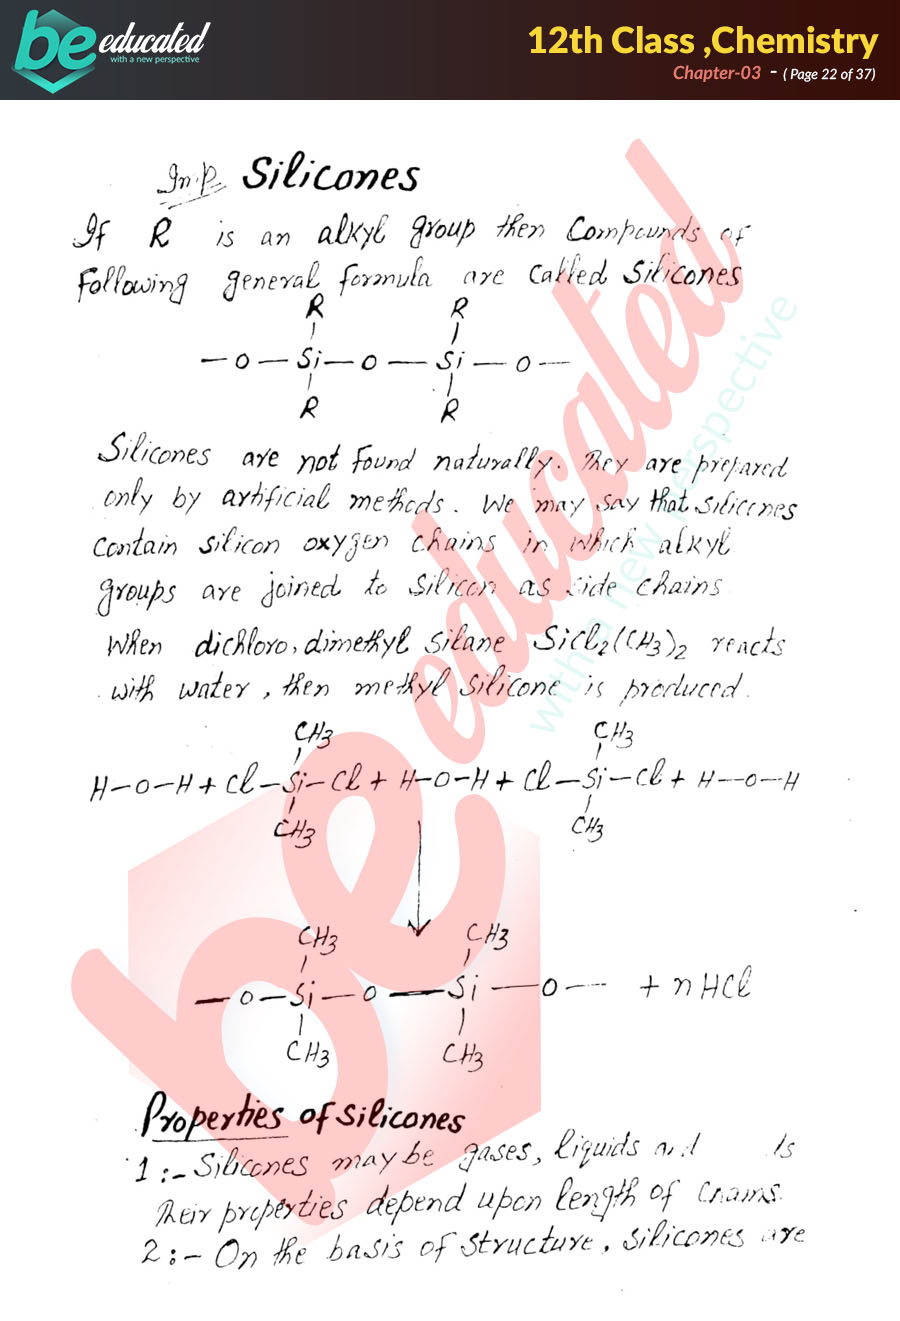 be educated
with a new perspective
12th Class ,Chemistry
Chapter-03 - ( Page 22 of 37)
Imp. Silicones
If R is an alkyl group then Compounds of
Following general formula are called Silicones
R R
— O — Si — O — Si — O —
R R
Silicones are not found naturally. They are prepared
only by artificial methods. We may say that silicones
contain silicon oxygen chains in which alkyl
groups are joined to silicon as side chains
When dichloro, dimethyl silane SiCl2(CH3)2 reacts
with water, then methyl silicone is produced.
CH3 CH3
H–O–H + Cl–Si–Cl + H–O–H + Cl–Si–Cl + H–O–H
CH3 CH3
CH3 CH3
— O — Si — O — Si — O — + nHCl
CH3 CH3
Properties of silicones
1 :- Silicones may be gases, liquids
Their properties depend upon length of chains.
2 :- On the basis of structure, silicones are
be educated
with a new perspective